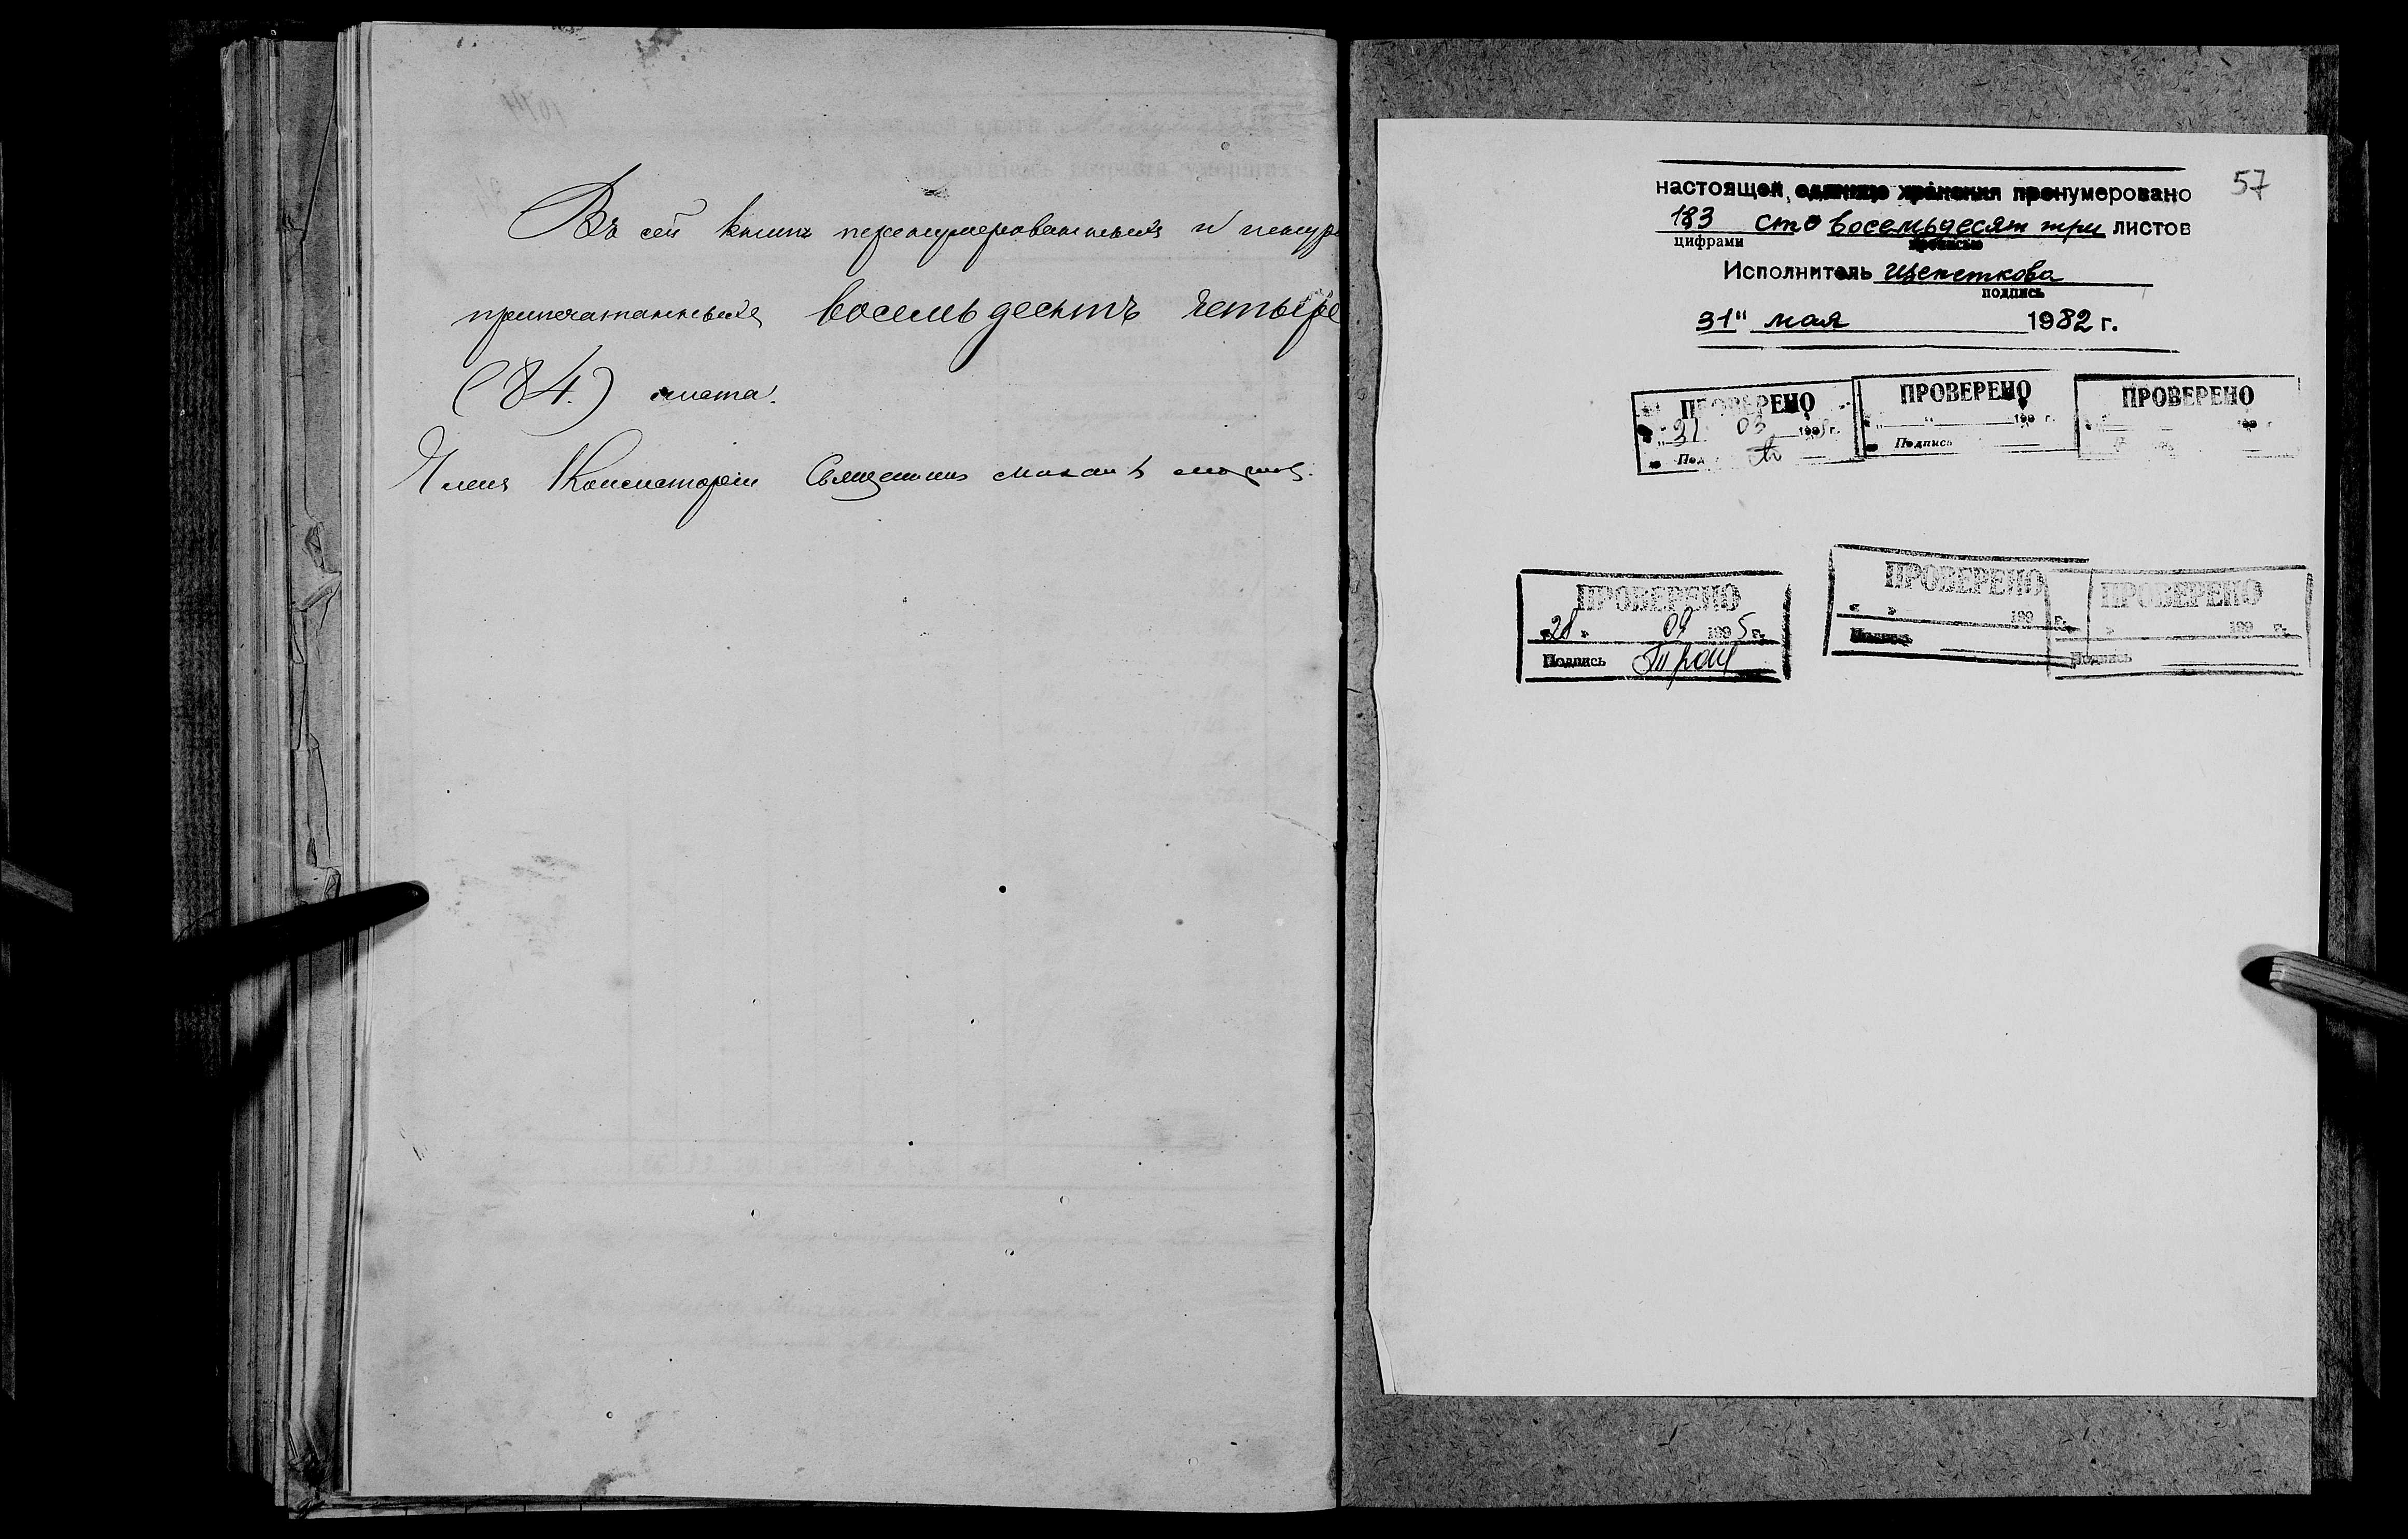 Въ сей книгѣ перенумерованныхъ и шнур
припечатанныхъ восемьдесятъ четыре
(84.) листа.
Членъ Консисторіи Священникъ
57
настоящей единице хранения пронумеровано
183 сто восемьдесят три листов
цифрами прописью
Исполнитель Щепеткова
подпись
31" мая 1982 г.
ПРОВЕРЕНО
31 03 199 г.
Под
ПРОВЕРЕНО
" 199 г.
Подпись
ПРОВЕРЕНО
199 г
ПРОВЕРЕНО
«28» 09 1995 г.
Подпись
ПРОВЕРЕНО
« » 199 г.
Подпись
ПРОВЕРЕНО
» 199 г.
Подпись